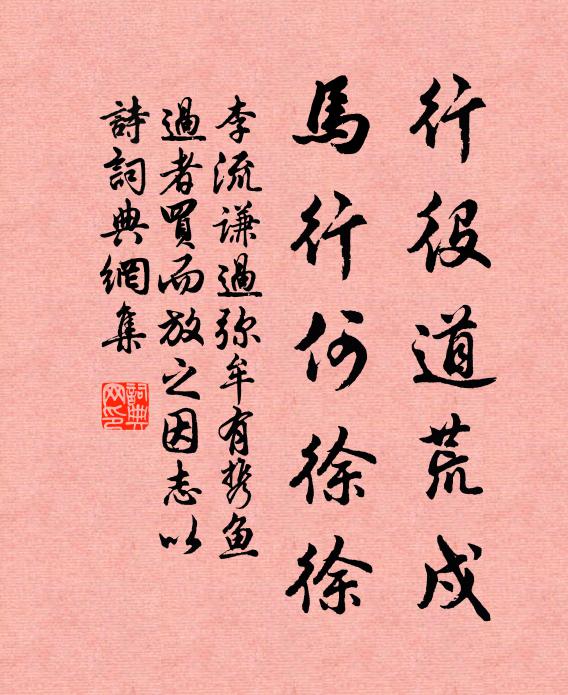 行役道荒戍
馬行何徐徐
李流謙過弥牟有携鱼
過者買而放之因志以
詩詞典網集
詞典网印